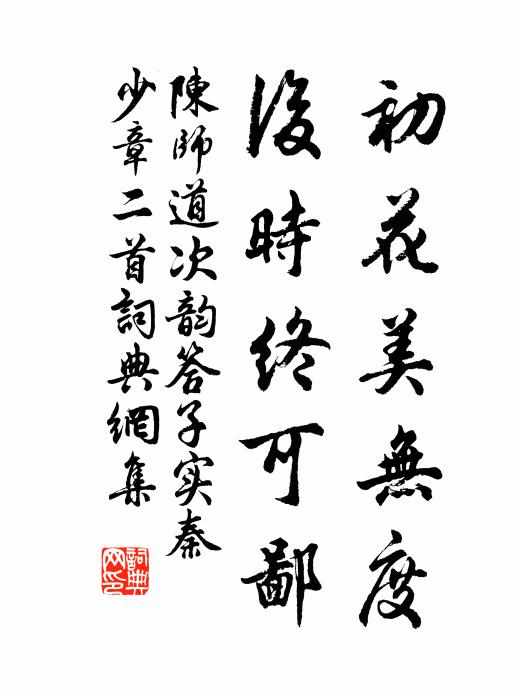 初花美無度
後時終可鄙
陳師道次韵答子实秦
少章二首詞典網集
詞典网印